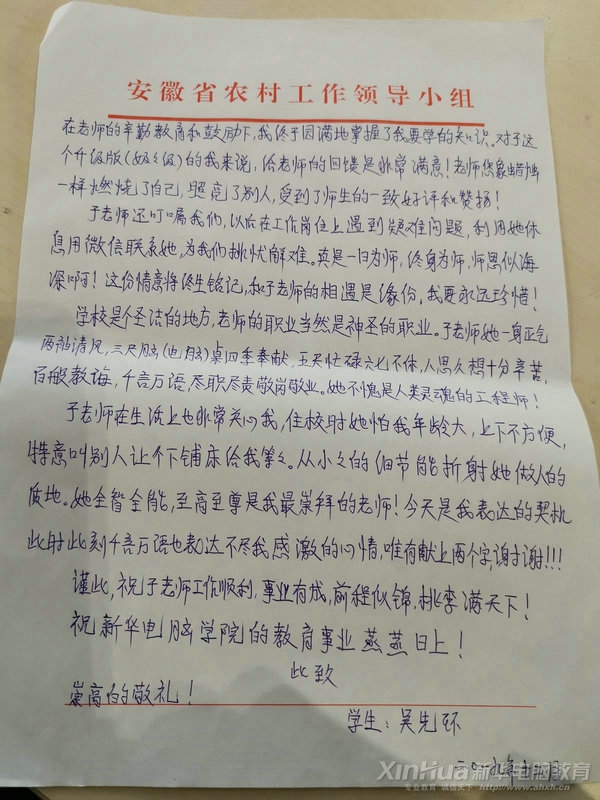 安徽省农村工作领导小组
在老师的辛勤教育和鼓励下,我终于圆满地掌握了我要学的知识。对于这
个升级版(奶奶级)的我来说,给老师的回馈是非常满意!老师您象蜡烛
一样燃烧了自己,照亮了别人,受到了师生的一致好评和赞扬!
于老师还叮嘱我们,以后在工作岗位上遇到疑难问题,利用她休
息用微信联系她,为我们排忧解难。真是一日为师,终身为师,师恩似海
深啊!这份情意将终生铭记,和于老师的相遇是缘份,我要永远珍惜!
学校是个圣洁的地方,老师的职业当然是神圣的职业。于老师她一身正气
两袖清风,三尺脑(电脑)桌四季奉献,五天忙碌六七不休,八思久想十分辛苦,
百般教诲,千言万语,尽职尽责敬岗敬业。她不愧是人类灵魂的工程师!
于老师在生活上也非常关心我,住校时她怕我年龄大,上下不方便,
特意叫别人让个下铺床给我等等。从小小的细节能折射她做人的
质地。她全智全能,至高至尊是我最崇拜的老师!今天是我表达的契机
此时此刻千言万语也表达不尽我感激的心情,唯有献上两个字,谢谢!!!
谨此,祝于老师工作顺利,事业有成,前程似锦,桃李满天下!
祝新华电脑学院的教育事业蒸蒸日上!
此致
崇高的敬礼!
学生:吴先环
XinHua新华电脑教育
专业教育 诚信天下 http://www.ahxh.cn